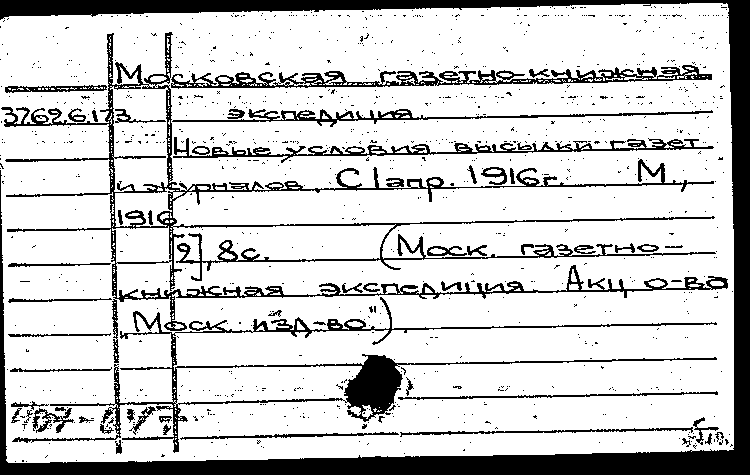 Московская газетно-книжная
3762.6.173 экспедиция.
Новые условия высылки газет
и журналов. С 1 апр. 1916 г. М.,
1916
[2], 8 с. (Моск. газетно-
книжная экспедиция. Акц. о-во
„Моск. изд-во").